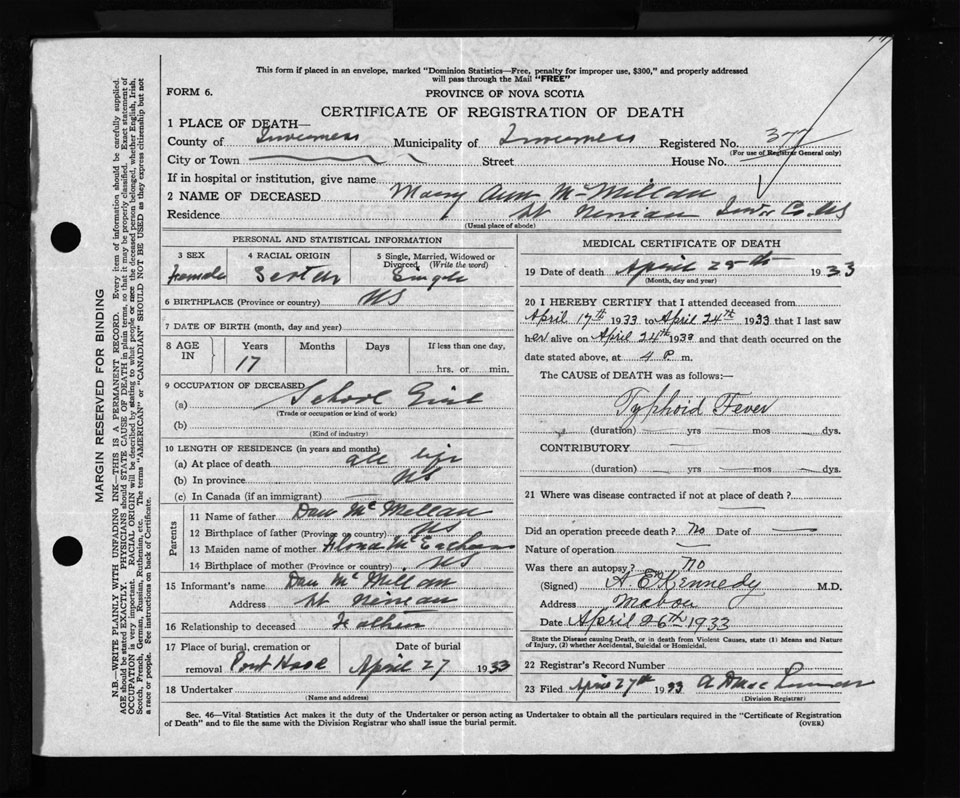 This form if placed in an envelope, marked "Dominion Statistics—Free, penalty for improper use, $300," and properly addressed
will pass through the Mail "FREE"
FORM 6.
PROVINCE OF NOVA SCOTIA
CERTIFICATE OF REGISTRATION OF DEATH
1 PLACE OF DEATH—
County of Inverness Municipality of Inverness Registered No. 377
(For use of Registrar General only)
City or Town Street House No.
If in hospital or institution, give name
2 NAME OF DECEASED Mary Ann McMillan
Residence St Ninian Inver Co NS
(Usual place of abode)
PERSONAL AND STATISTICAL INFORMATION
3 SEX 4 RACIAL ORIGIN 5 Single, Married, Widowed or
Divorced (Write the word)
female Scotch Single
6 BIRTHPLACE (Province or country) NS
7 DATE OF BIRTH (month, day and year)
8 AGE IN Years Months Days If less than one day,
17 hrs. or min.
9 OCCUPATION OF DECEASED
(a) School Girl
(Trade or occupation or kind of work)
(b)
(Kind of industry)
10 LENGTH OF RESIDENCE (in years and months)
(a) At place of death all life
(b) In province NS
(c) In Canada (if an immigrant)
Parents
11 Name of father Dan McMillan
12 Birthplace of father (Province or country) NS
13 Maiden name of mother McEachern
14 Birthplace of mother (Province or country) NS
15 Informant's name Dan McMillan
Address St Ninian
16 Relationship to deceased Father
17 Place of burial, cremation or Date of burial
removal Port Hood April 27 1933
18 Undertaker
(Name and address)
MEDICAL CERTIFICATE OF DEATH
19 Date of death April 25th 1933
(Month, day and year)
20 I HEREBY CERTIFY that I attended deceased from
April 17th 1933 to April 24th 1933 that I last saw
her alive on April 24th 1933 and that death occurred on the
date stated above, at 4 P. m.
The CAUSE OF DEATH was as follows:—
Typhoid Fever
(duration) yrs mos dys.
CONTRIBUTORY
(duration) yrs mos dys.
21 Where was disease contracted if not at place of death?
Did an operation precede death? No Date of
Nature of operation
Was there an autopsy? No
(Signed) A. E. Kennedy M.D.
Address Mabou
Date April 26th 1933
State the Disease causing Death, or in death from Violent Causes, state (1) Means and Nature
of Injury, (2) whether Accidental, Suicidal or Homicidal.
22 Registrar's Record Number
23 Filed April 27th 1933
(Division Registrar)
Sec. 46—Vital Statistics Act makes it the duty of the Undertaker or person acting as Undertaker to obtain all the particulars required in the "Certificate of Registration
of Death" and to file the same with the Division Registrar who shall issue the burial permit.
(OVER)
MARGIN RESERVED FOR BINDING
N.B.—WRITE PLAINLY WITH UNFADING INK—THIS IS A PERMANENT RECORD. Every item of information should be carefully supplied.
AGE should be stated EXACTLY. PHYSICIANS should STATE CAUSE OF DEATH in plain terms, so that it may be properly classified. Exact statement of
OCCUPATION is very important. RACIAL ORIGIN will be described by stating to what people or race the deceased person belonged, whether English, Irish,
Scotch, French, German, Russian, Ruthenian, etc. The terms "AMERICAN" or "CANADIAN" SHOULD NOT BE USED as they express citizenship but not
a race or people. See instructions on back of Certificate.